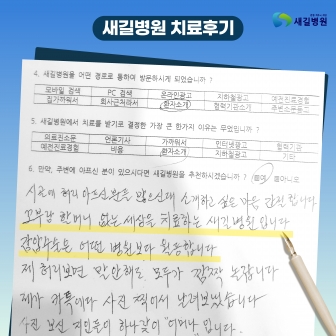 새길병원 치료후기
새길병원
4. 새길병원을 어떤 경로로 통하여 방문하시게 되었습니까 ?
모바일 검색 PC 검색 온라인광고 지하철광고 예전진료경험
집가까워서 회사근처라서 환자소개 협력기관소개
5. 새길병원에서 치료를 받기로 결정한 가장 큰 한가지 이유는 무엇입니까 ?
의료진소문 언론기사 가까워서 인터넷광고 협력기관
예전진료경험 비용 환자소개 지하철광고 기타
6. 만약, 주변에 아프신 분이 있으시다면 새길병원을 추천하시겠습니까 ?
시골에 허리 아프신분들 많으신데 소개하고 싶은 마음 간절합니다
꼬부랑 할머니 없는 세상을 치료하는 새길병원입니다
감압술은 어떤 병원보다 월등합니다
제 허리보면 말안해도 모두가 깜짝 놀랍니다
제가 카톡에다 사진 찍어서 날려보냈습니다
사진 보신 지인들이 하나같이 "어머나" 입니다.